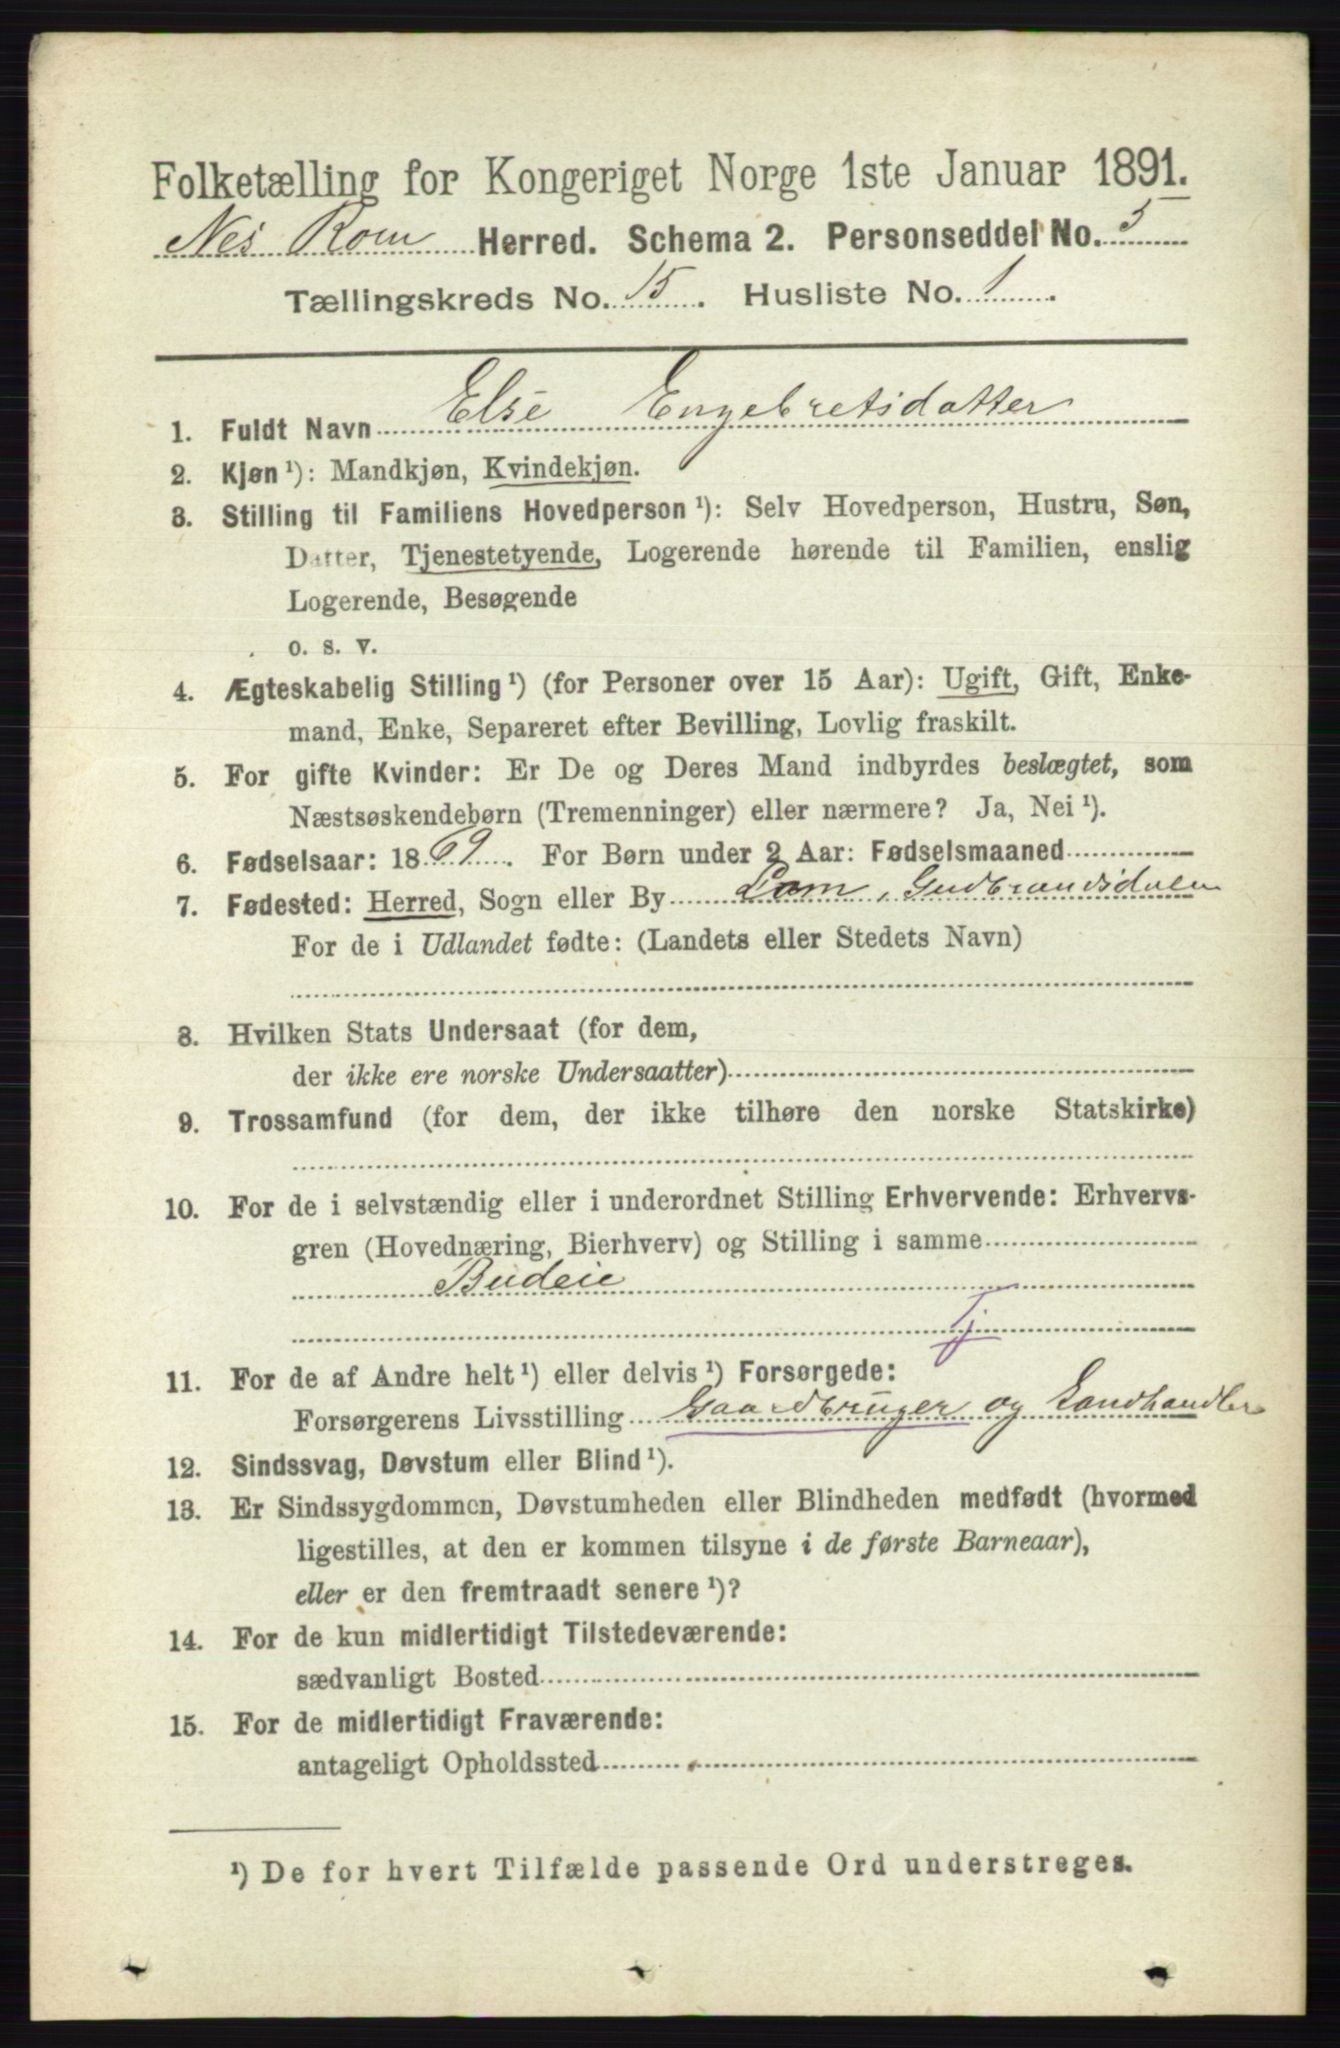 Folketælling for Kongeriget Norge 1ste Januar 1891.
Nes Rom Herred. Schema 2. Personseddel No. 5
Tællingskreds No. 15. Husliste No. 1.
1. Fuldt Navn Else Engebretsdatter
2. Kjøn ¹): Mandkjøn, Kvindekjøn.
3. Stilling til Familiens Hovedperson ¹): Selv Hovedperson, Hustru, Søn,
Datter, Tjenestetyende, Logerende hørende til Familien, enslig
Logerende, Besøgende
o. s. v.
4. Ægteskabelig Stilling ¹) (for Personer over 15 Aar): Ugift, Gift, Enke-
mand, Enke, Separeret efter Bevilling, Lovlig fraskilt.
5. For gifte Kvinder: Er De og Deres Mand indbyrdes beslægtet, som
Næstsøskendebørn (Tremenninger) eller nærmere? Ja, Nei ¹).
6. Fødselsaar: 1869. For Børn under 2 Aar: Fødselsmaaned
7. Fødested: Herred, Sogn eller By Lom, Gudbrandsdalen
For de i Udlandet fødte: (Landets eller Stedets Navn)
8. Hvilken Stats Undersaat (for dem,
der ikke ere norske Undersaatter)
9. Trossamfund (for dem, der ikke tilhøre den norske Statskirke)
10. For de i selvstændig eller i underordnet Stilling Erhvervende: Erhvervs-
gren (Hovednæring, Bierhverv) og Stilling i samme
Budeie
Tj
11. For de af Andre helt ¹) eller delvis ¹) Forsørgede:
Forsørgerens Livsstilling Gaardbruger og Landhandler
12. Sindssvag, Døvstum eller Blind ¹).
13. Er Sindssygdommen, Døvstumheden eller Blindheden medfødt (hvormed
ligestilles, at den er kommen tilsyne i de første Barneaar),
eller er den fremtraadt senere ¹)?
14. For de kun midlertidigt Tilstedeværende:
sædvanligt Bosted
15. For de midlertidigt Fraværende:
antageligt Opholdssted
¹) De for hvert Tilfælde passende Ord understreges.